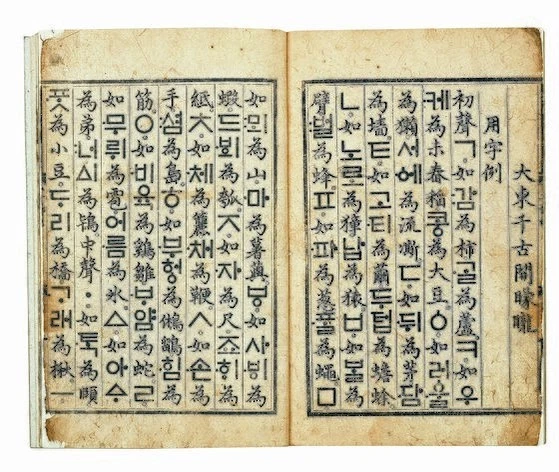 大東千古開矇矓
用字例
初聲ㄱ。如감為柿。ᄀᆞᆯ為蘆。ㅋ。如우
케為未舂稻。콩為大豆。ㆁ。如러울
為獺。서ᅌᅦ為流凘。ㄷ。如뒤為茅。담
為墻。ㅌ。如고티為繭。두텁為蟾蜍。
ㄴ。如노로為獐。납為猿。ㅂ。如ᄇᆞᆯ為
臂。벌為蜂。ㅍ。如파為葱。ᄑᆞᆯ為蠅。ㅁ
如뫼為山。마為薯藇。ㅸ。如사ᄫᅵ為
蝦。드ᄫᅴ為瓠。ㅈ。如자為尺。죠ᄒᆡ為
紙。ㅊ。如체為籭。채為鞭。ㅅ。如손為
手。셤為島。ㅎ。如부헝為鵂鶹。힘為
筋。ㅇ。如비육為鷄雛。ᄇᆞ얌為蛇。ㄹ
如무뤼為雹。어름為氷。ㅿ。如아ᅀᆞ
為弟。너ᅀᅵ為鴇。中聲ㆍ。如ᄐᆞᆨ為頤。
ᄑᆞᆺ為小豆。ᄃᆞ리為橋。ᄀᆞ래為楸。ㅡ